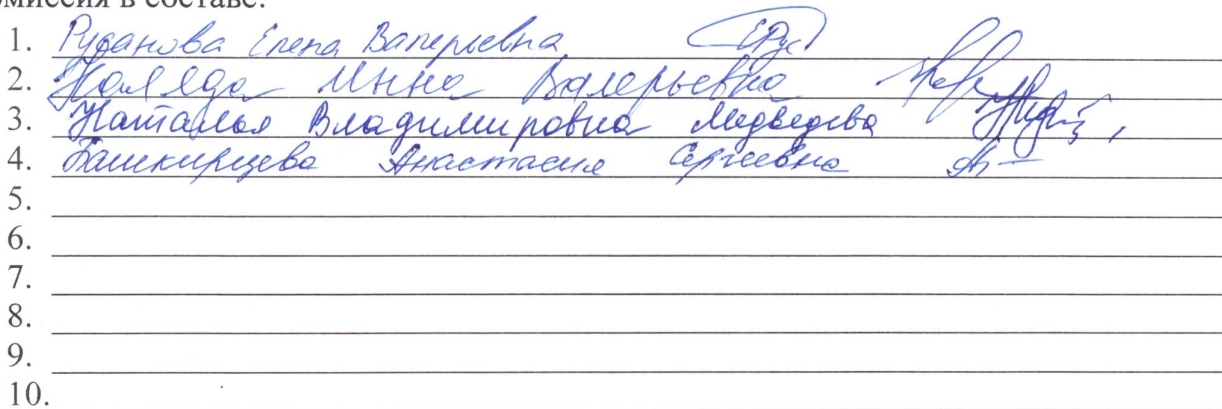 омиссия в составе:
1. Русанова Елена Валерьевна
2. Коляда Инна Валерьевна
3. Наталья Владимировна Медведева
4. Башкирцева Анастасия Сергеевна
5.
6.
7.
8.
9.
10.